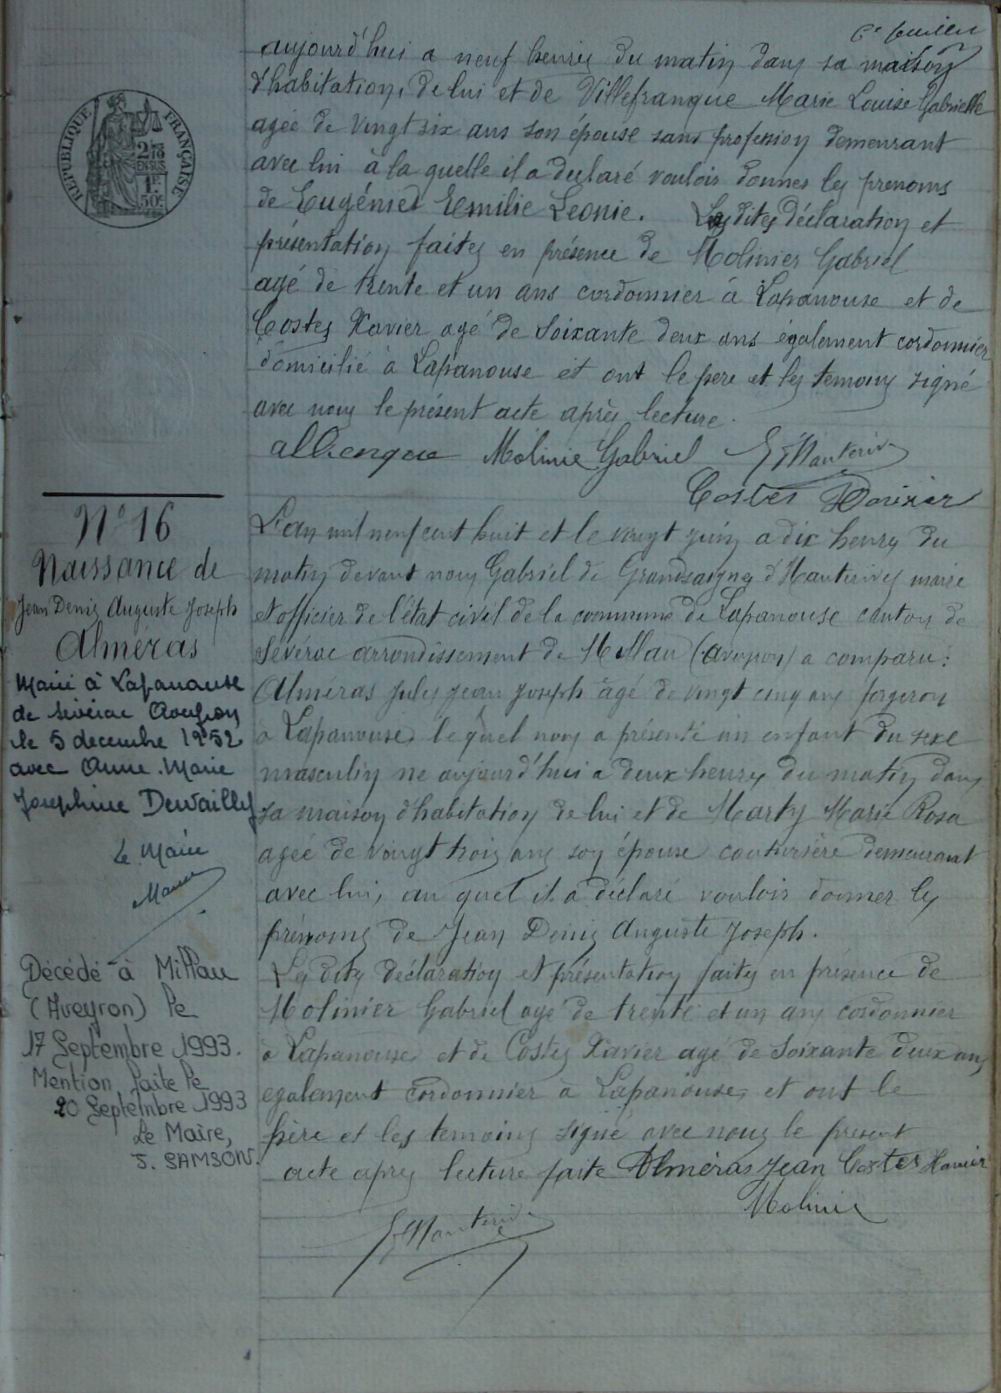 6e feuillet
aujourd'hui a neuf heures du matin dans sa maison
d'habitation, de lui et de Villefranque Marie Louise Gabrielle
agée de vingt six ans son épouse sans profession demeurant
avec lui à la quelle il a declaré vouloir donner les prenoms
de Eugénie Emilie Leonie. Les dites déclaration et
présentation faites en présence de Molinier Gabriel
agé de trente et un ans cordonnier à Lapanouse et de
Costes Xavier agé de soixante deux ans également cordonnier
domicilié à Lapanouse et ont le père et les temoins signé
avec nous le présent acte après lecture.
Molinié Gabriel G d'Hauterives
Costes
RÉPUBLIQUE FRANÇAISE
N° 16
Naissance de
Jean Denis Auguste Joseph
Alméras
L'an mil neuf cent huit et le vingt juin a dix heures du
matin devant nous Gabriel de Grandsaignes d'Hauterives maire
et officier de l'état civil de la commune de Lapanouse canton de
Sévérac arrondissement de Millau (Aveyron) a comparu:
Alméras Jules Jean Joseph agé de vingt cinq ans forgeron
à Lapanouse, lequel nous a présenté un enfant du sexe
masculin né aujourd'hui a deux heures du matin dans
sa maison d'habitation de lui et de Marty Marie Rosa
agée de vingt trois ans son épouse couturière demeurant
avec lui, au quel il a déclaré vouloir donner les
prénoms de Jean Denis Auguste Joseph.
Les dites déclaration et présentation faites en présence de
Molinier Gabriel agé de trente et un ans cordonnier
à Lapanouse et de Costes Xavier agé de soixante deux ans
egalement cordonnier à Lapanouse, et ont le
père et les temoins signé avec nous le present
acte apres lecture faite Alméras Jean Costes Xavier
Molinié
G d'Hauterives
Marié à Lapanouse
de Sévérac Aveyron
le 5 decembre 1952
avec Anne-Marie
Josephine Dewailly
Le Maire
Décédé à Millau
(Aveyron) le
17 Septembre 1993.
Mention faite le
20 Septembre 1993
Le Maire,
J. SAMSON.